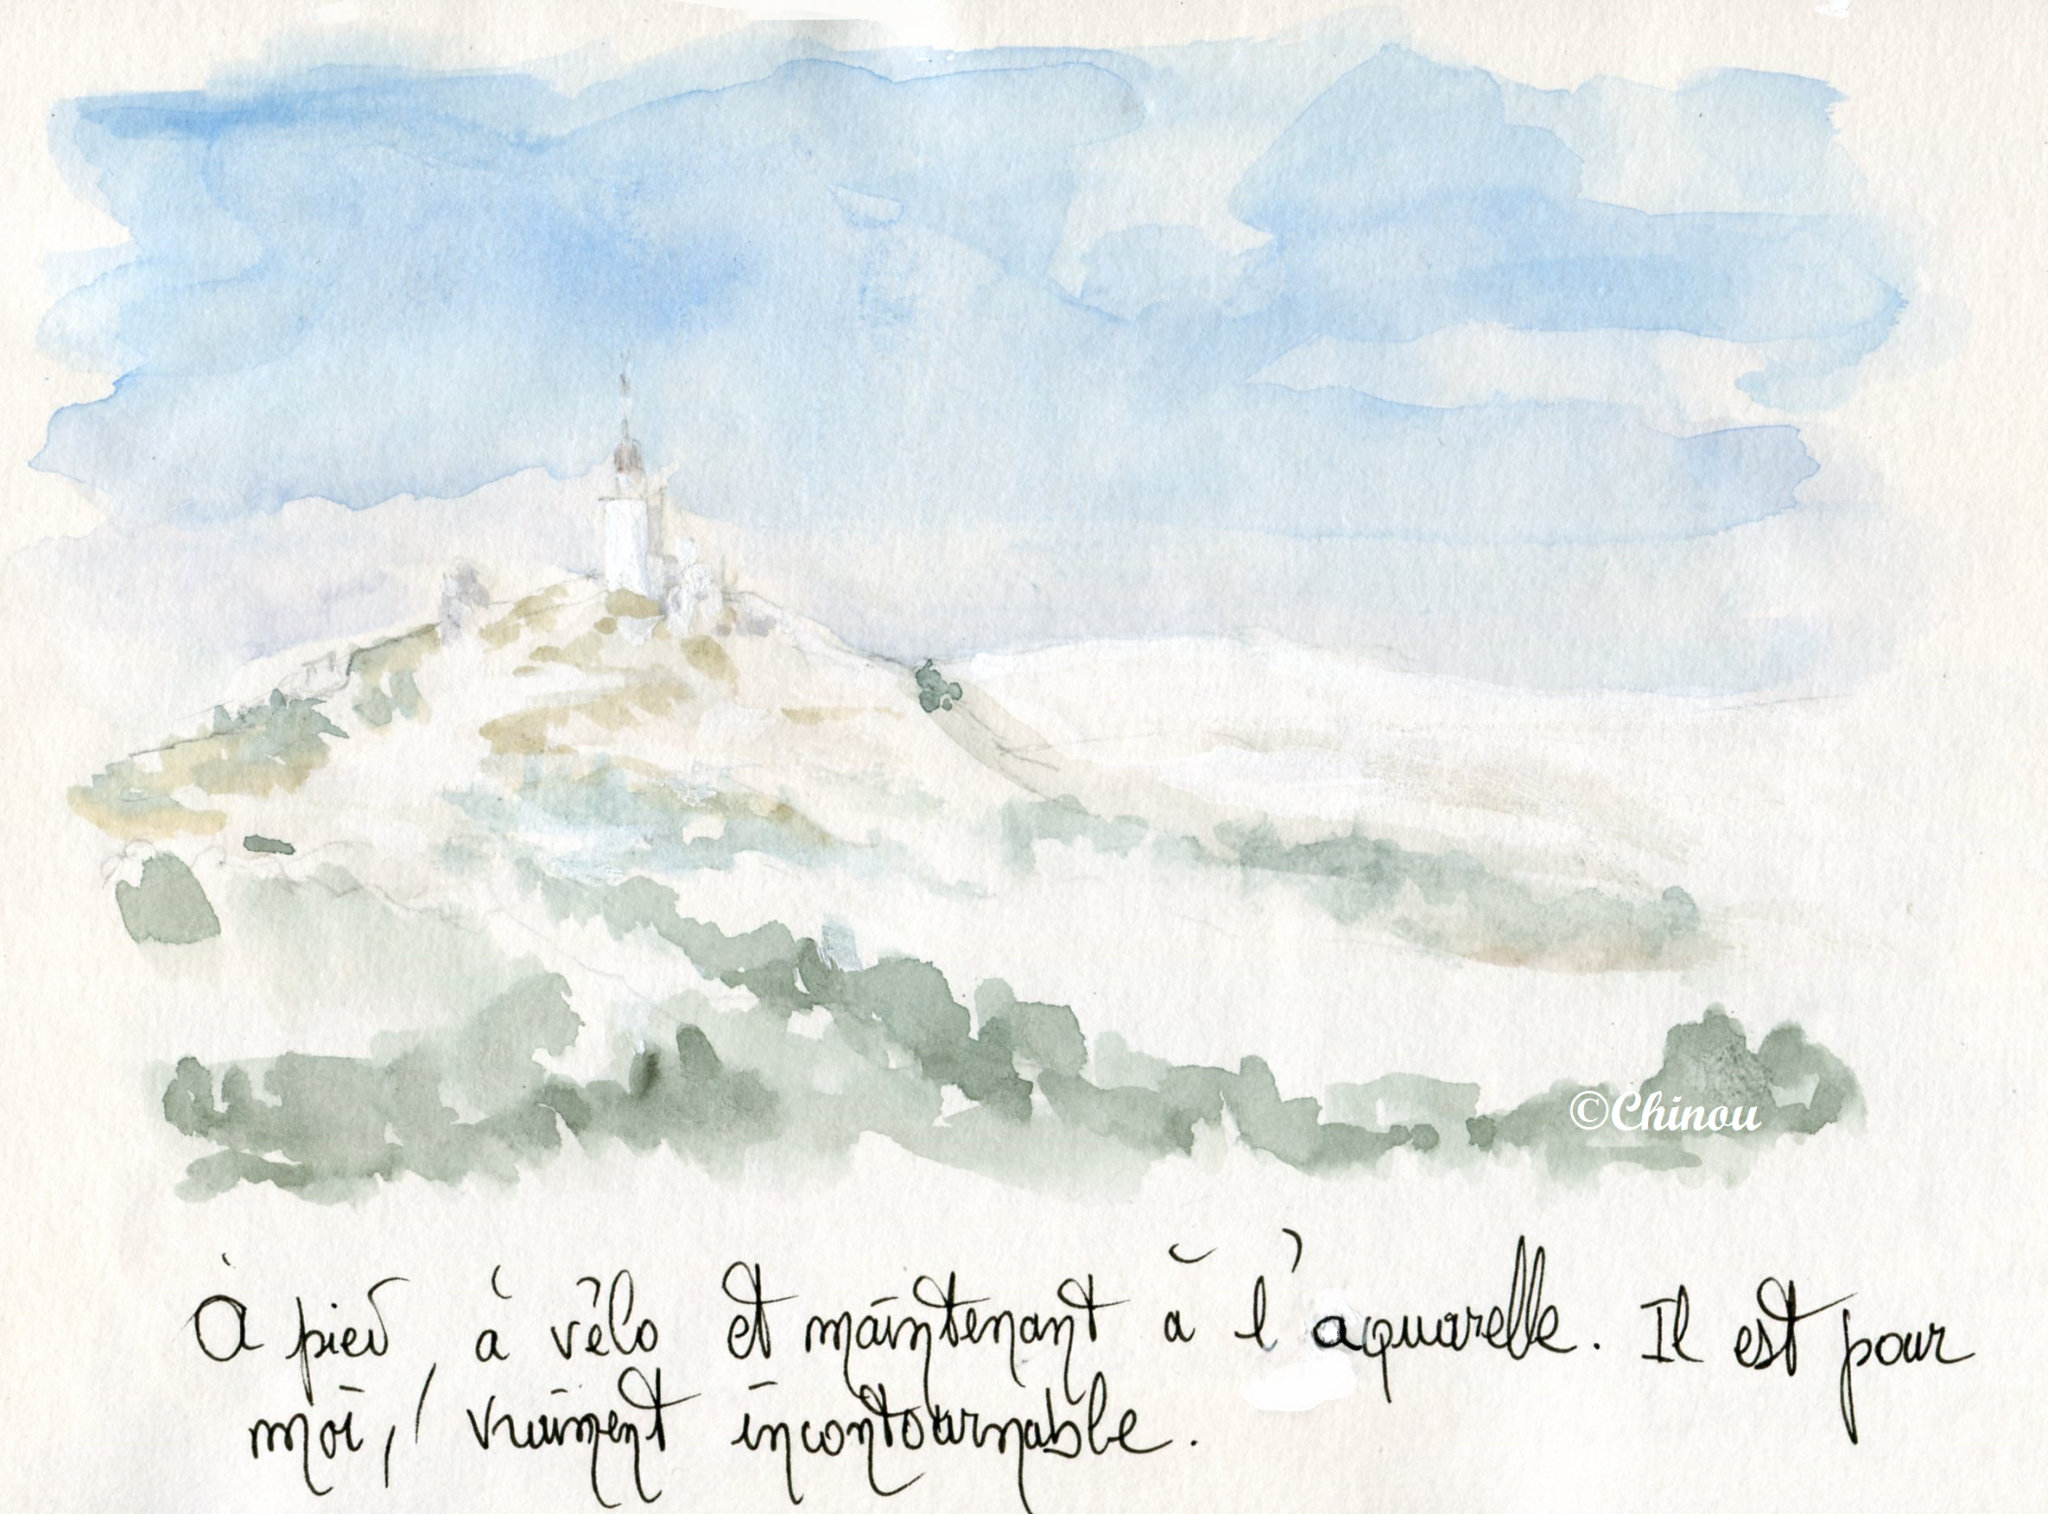 ©Chinou
À pied, à vélo et maintenant à l'aquarelle. Il est pour
moi, vraiment incontournable.